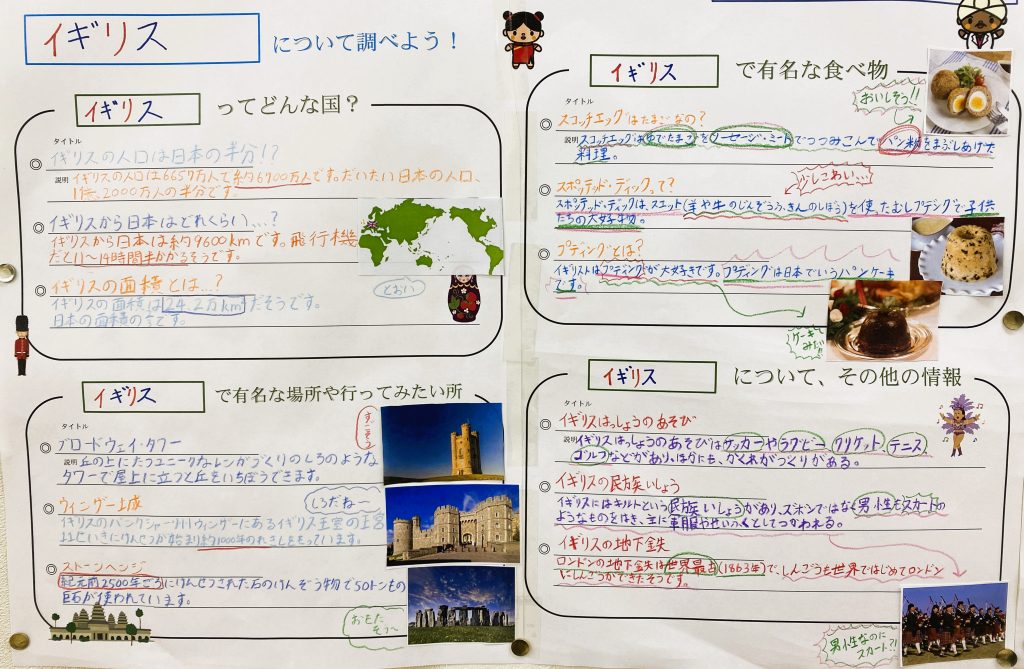 イギリス について調べよう！
イギリス ってどんな国？
タイトル
イギリスの人口は日本の半分!?
説明 イギリスの人口は6657万人で約6700万人です。だいたい日本の人口、
1億、2000万人の半分です。
イギリスから日本はどれくらい…?
イギリスから日本は約9600kmです。飛行機
だと11〜14時間半かかるそうです。
イギリスの面積とは…?
イギリスの面積は24.2万km²だそうです。
日本の面積の
です。
とおい
イギリス で有名な場所や行ってみたい所
タイトル
ブロードウェイ・タワー
説明 丘の上にたつユニークなレンガづくりのしろのような
タワーで屋上に立つと丘をいちぼうできます。
ウィンザー城
しろだね〜
イギリスのバークシャー州ウィンザーにあるイギリス王室の王宮
11せいきにけんせつが始まり約1000年のれきしをもっています。
ストーンヘンジ
紀元前2500年ごろにけんせつされた石のけんぞう物で50トンもの
巨石が使われています。
おもた
そう〜
イギリス で有名な食べ物
おいしそう!!
タイトル
スコッチエッグはたまごなの?
説明 スコッチエッグはゆでたまごをソーセージ・ミートでつつみこんでパン粉をまぶしあげた
料理。
スポテッド・ディックって?
スポテッド・ディックは、スエット(羊や牛のじんぞうふきんのしぼう)を使ったむしプディングで子供
たちの大好き物。
プディングとは?
イギリス人はプディングが大好きです。プディングは日本でいうパンケーキ
です。
ケーキ
みだい!!
イギリス について、その他の情報
タイトル
イギリスはっしょうのあそび
説明 イギリスはっしょうのあそびはサッカーやラグビー クリケット、テニス
ゴルフなどがあり、ほかにも、かくれがづくりがある。
イギリスの民族いしょう
イギリスにはキルトという民族いしょうがあり、ズボンではなく男性もスカートの
ようなものをはき、主に軍服やせいふくとしてつかわれる。
イギリスの地下鉄
ロンドンの地下鉄は世界最古(1863年)で、しんごうも世界ではじめてロンドン
にしんごうができたそうです。
男性なのに
スカート?!